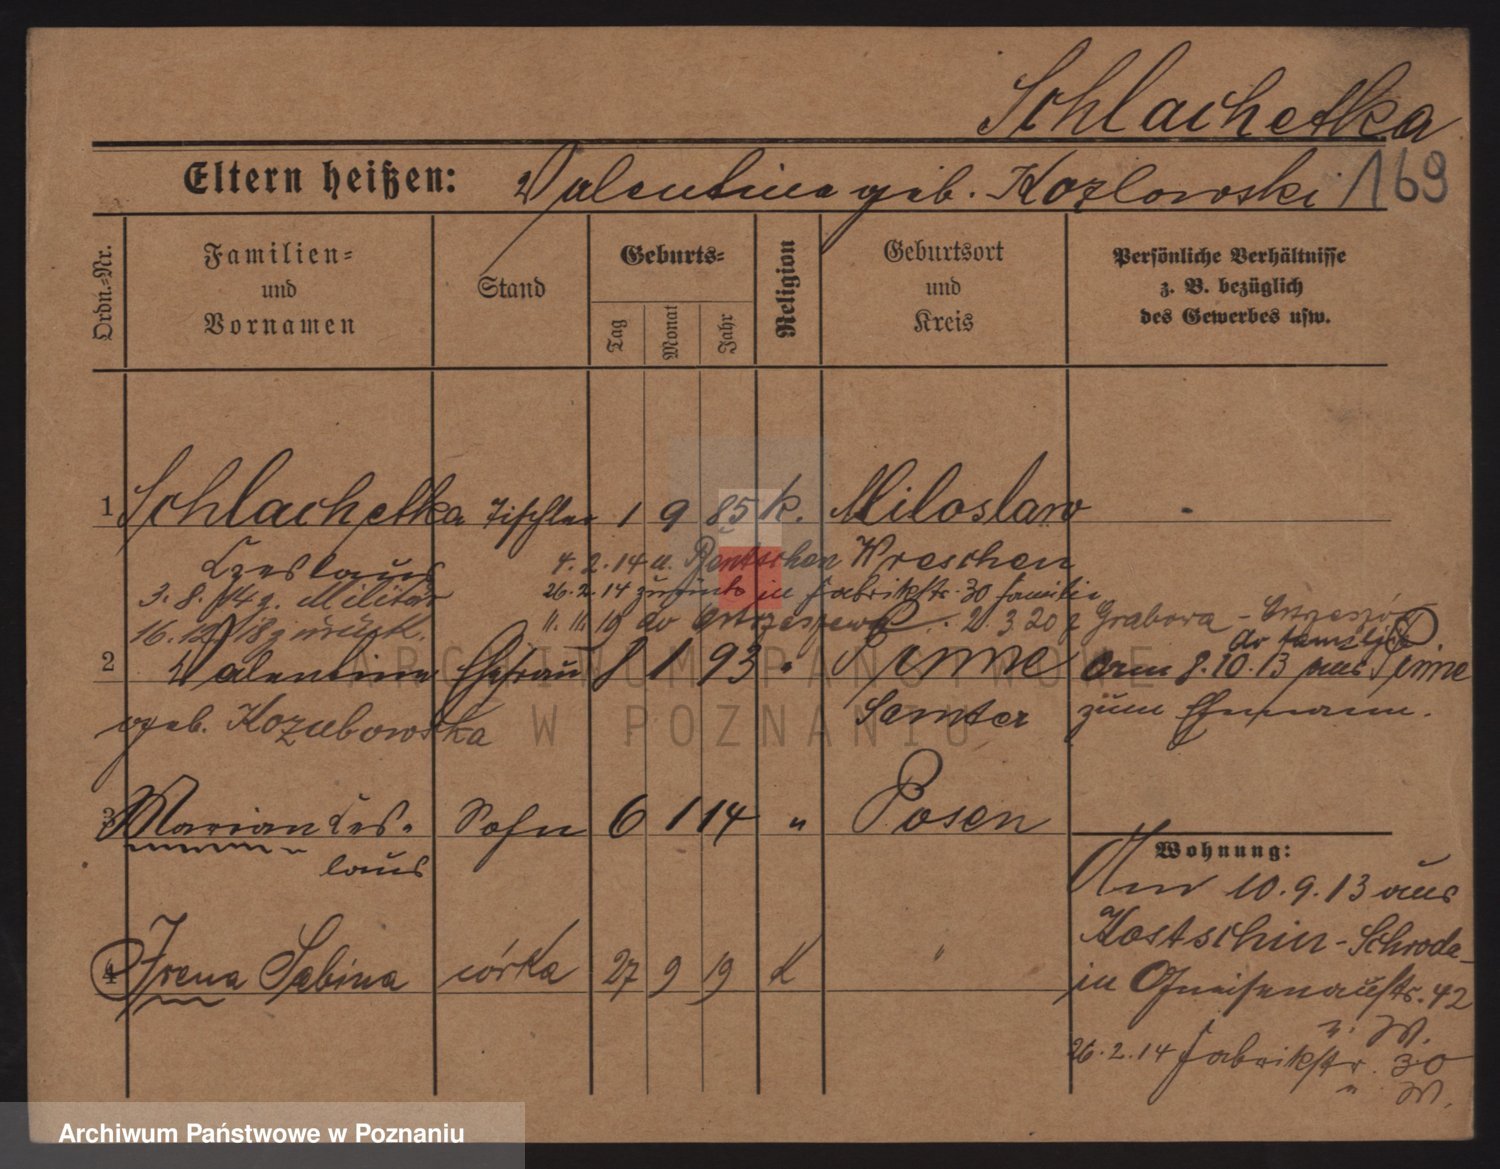 Schlachetka
Eltern heißen: Valentine geb. Kozlowski 169
Ordn.-Nr.
Familien- und Vornamen
Stand
Geburts-
Tag
Monat
Jahr
Religion
Geburtsort und Kreis
Persönliche Verhältnisse
z. B. bezüglich
des Gewerbes usw.
1 Schlachetka Tischler 1 9 85 k. Miloslaw
Czeslaus 4.2.14 n. Bentschen Wreschen
3.8.14 z. Militär 26.2.14 zurück in Fabrikstr. 30 Familie
16.12.18 zurück. 11.III.19 do Ostrzeszewa 2 3 20 z Grabowa -
do familji
2 Valentine Ehefrau 8 1 93 " Pinne Am 8.10.13 aus Pinne
geb. Kozubowska Samter zum Ehemann.
3 Marian Ces- Sohn 6 1 14 " Posen
laus
Wohnung:
An 10.9.13 aus
Kostschin-Schroda
4 Irena Sabina córka 27 9 19 K "
in Gneisenaustr. 42
b. W.
26.2.14 Fabrikstr. 30
" W.
ARCHIWUM PAŃSTWOWE
W POZNANIU
Archiwum Państwowe w Poznaniu